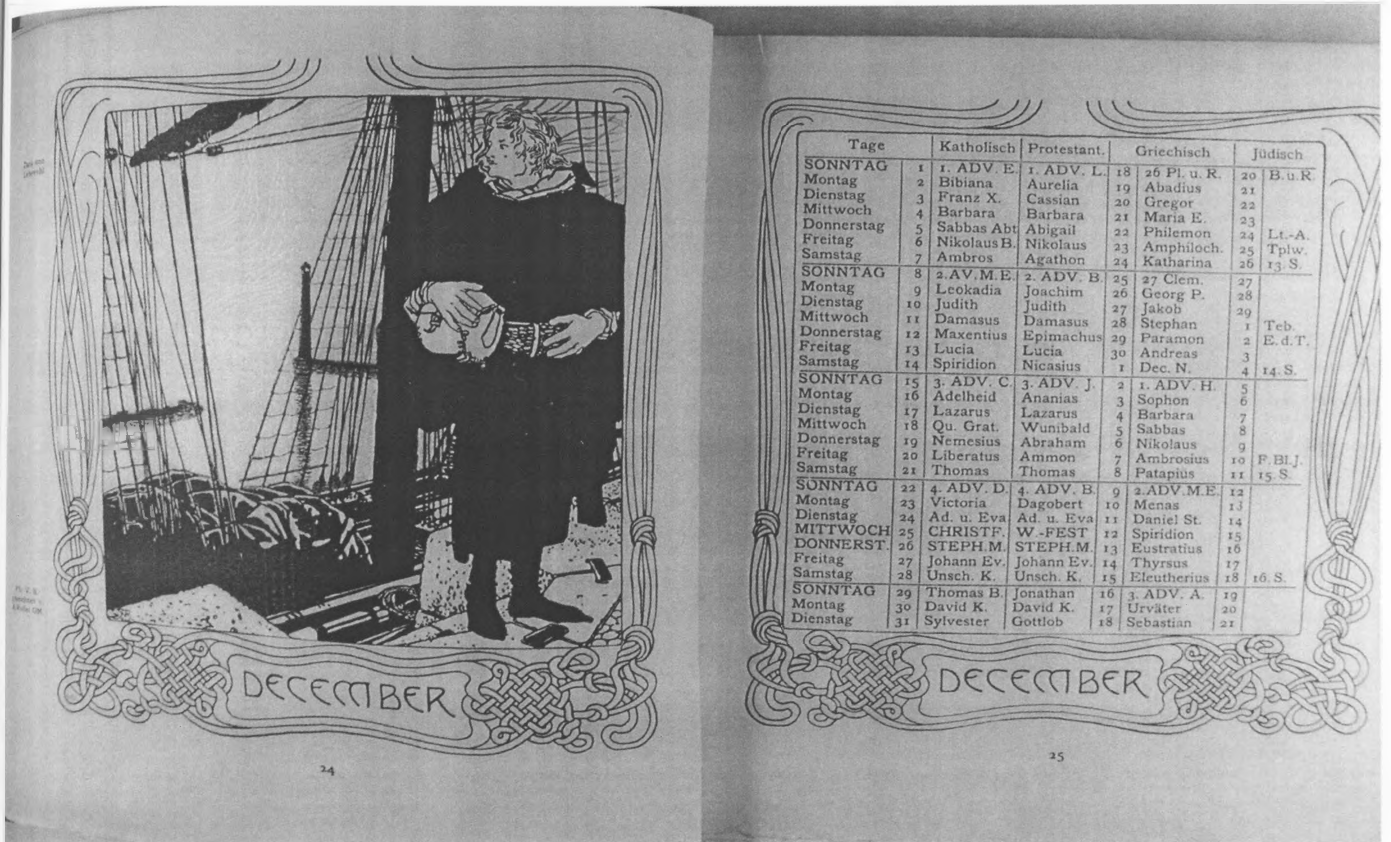 DECEMBER
24
Tage Katholisch Protestant. Griechisch Jüdisch
SONNTAG 1 1. ADV. E. 1. ADV. L. 18 26 Pl. u. R. 20 B.u.R.
Montag 2 Bibiana Aurelia 19 Abadius 21
Dienstag 3 Franz X. Cassian 20 Gregor 22
Mittwoch 4 Barbara Barbara 21 Maria E. 23
Donnerstag 5 Sabbas Abt Abigail 22 Philemon 24 Lt.-A.
Freitag 6 Nikolaus B. Nikolaus 23 Amphiloch. 25 Tplw.
Samstag 7 Ambros Agathon 24 Katharina 26 13. S.
SONNTAG 8 2.AV.M.E. 2. ADV. B. 25 27 Clem. 27
Montag 9 Leokadia Joachim 26 Georg P. 28
Dienstag 10 Judith Judith 27 Jakob 29
Mittwoch 11 Damasus Damasus 28 Stephan 1 Teb.
Donnerstag 12 Maxentius Epimachus 29 Paramon 2 E.d.T.
Freitag 13 Lucia Lucia 30 Andreas 3
Samstag 14 Spiridion Nicasius 1 Dec. N. 4 14. S.
SONNTAG 15 3. ADV. C. 3. ADV. J. 2 1. ADV. H. 5
Montag 16 Adelheid Ananias 3 Sophon 6
Dienstag 17 Lazarus Lazarus 4 Barbara 7
Mittwoch 18 Qu. Grat. Wunibald 5 Sabbas 8
Donnerstag 19 Nemesius Abraham 6 Nikolaus 9
Freitag 20 Liberatus Ammon 7 Ambrosius 10 F.Bl.J.
Samstag 21 Thomas Thomas 8 Patapius 11 15. S.
SONNTAG 22 4. ADV. D. 4. ADV. B. 9 2.ADV.M.E. 12
Montag 23 Victoria Dagobert 10 Menas 13
Dienstag 24 Ad. u. Eva Ad. u. Eva 11 Daniel St. 14
MITTWOCH 25 CHRISTF. W.-FEST 12 Spiridion 15
DONNERST. 26 STEPH.M. STEPH.M. 13 Eustratius 16
Freitag 27 Johann Ev. Johann Ev. 14 Thyrsus 17
Samstag 28 Unsch. K. Unsch. K. 15 Eleutherius 18 16. S.
SONNTAG 29 Thomas B. Jonathan 16 3. ADV. A. 19
Montag 30 David K. David K. 17 Urväter 20
Dienstag 31 Sylvester Gottlob 18 Sebastian 21
DECEMBER
25